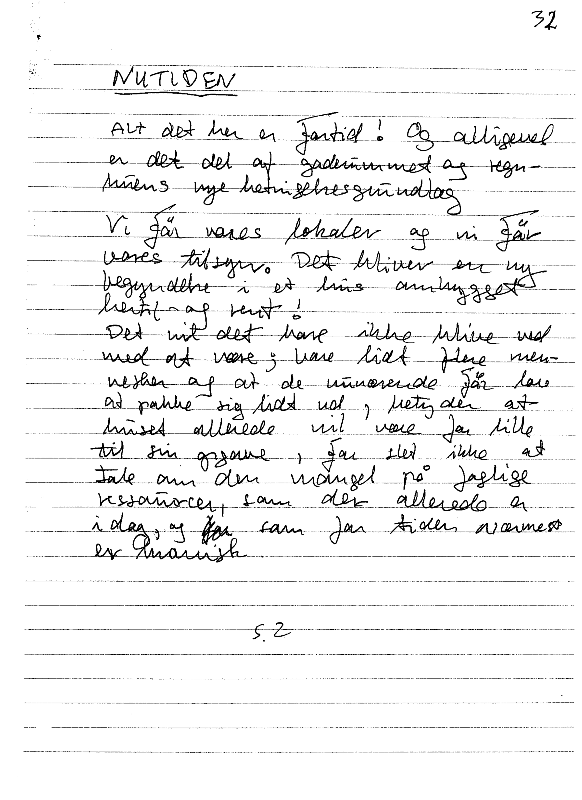 32
NUTIDEN
Alt det her er fortid! Og alligevel
er det del af gaderummet og regn-
buens nye hetingelsesgrundlag
Vi får vores lokaler og vi får
vores tilsyn. Det bliver en ny
begyndelse i et hus ombygget
hertil - og rent!
Det vil det bare ikke blive ved
med at være; bare lidt flere men-
nesker og at de nuværende får lov
at pakke sig lidt ud, betyder at
huset allerede vil være for lille
til sin opgave, for slet ikke at
tale om den mangel på faglige
ressourcer, som der allerede er
i dag, og som for tiden nærmest
er kronisk
s. 2